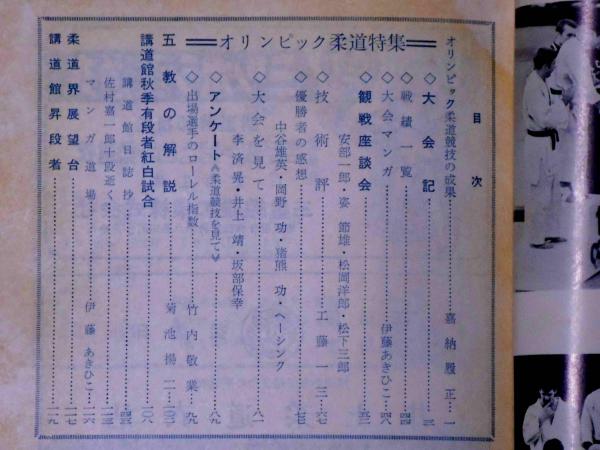 目次
オリンピック柔道特集
オリンピック柔道競技の成果……嘉納履正…一
◇大会記……三
◇戦績一覧……四四
◇大会マンガ……伊藤あきひこ…四八
◇観戦座談会……五二
安部一郎・姿節雄・松岡洋郎・松下三郎
◇技術評……工藤一三…六七
◇優勝者の感想……七七
中谷雄英・岡野功・猪熊功・ヘーシンク
◇大会を見て……八一
李済晃・井上靖・坂部保幸
◇アンケート≪柔道競技を見て≫……八九
◇出場選手のローレル指数……竹内敬業…九九
五教の解説……菊池揚二…一〇二
講道館秋季有段者紅白試合……一〇八
講道館日誌抄……四三
佐村嘉一郎十段逝く……一一三
マンガ道場……伊藤あきひこ…一一六
柔道界展望台……一一七
講道館昇段者……一一九